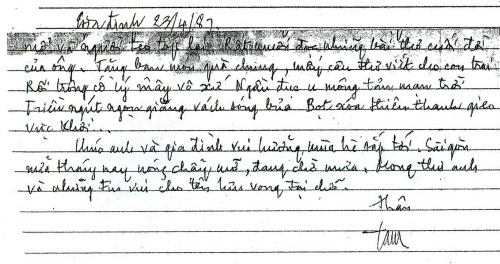 Gia định 23/4/87
mờ và người teo tóp lại. Rất muốn đọc những bài thơ cuối đời
của ông. Tặng bạn món quà chung, mấy câu thơ viết cho con trai
Rồi trong cô lý mây vô xứ Ngàn đục u mông tản man trời
Triều ngút ngọn giăng vách sóng bủa Bọt xóa thiên thanh
vực khơi...
Chúc anh và gia đình vui hưởng mùa hè sắp tới. Sàigòn
mấy tháng nay nóng chảy mỡ, đang chờ mưa. Mong thư anh
và những tin vui cho tên lưu vong tại chỗ.
Thân